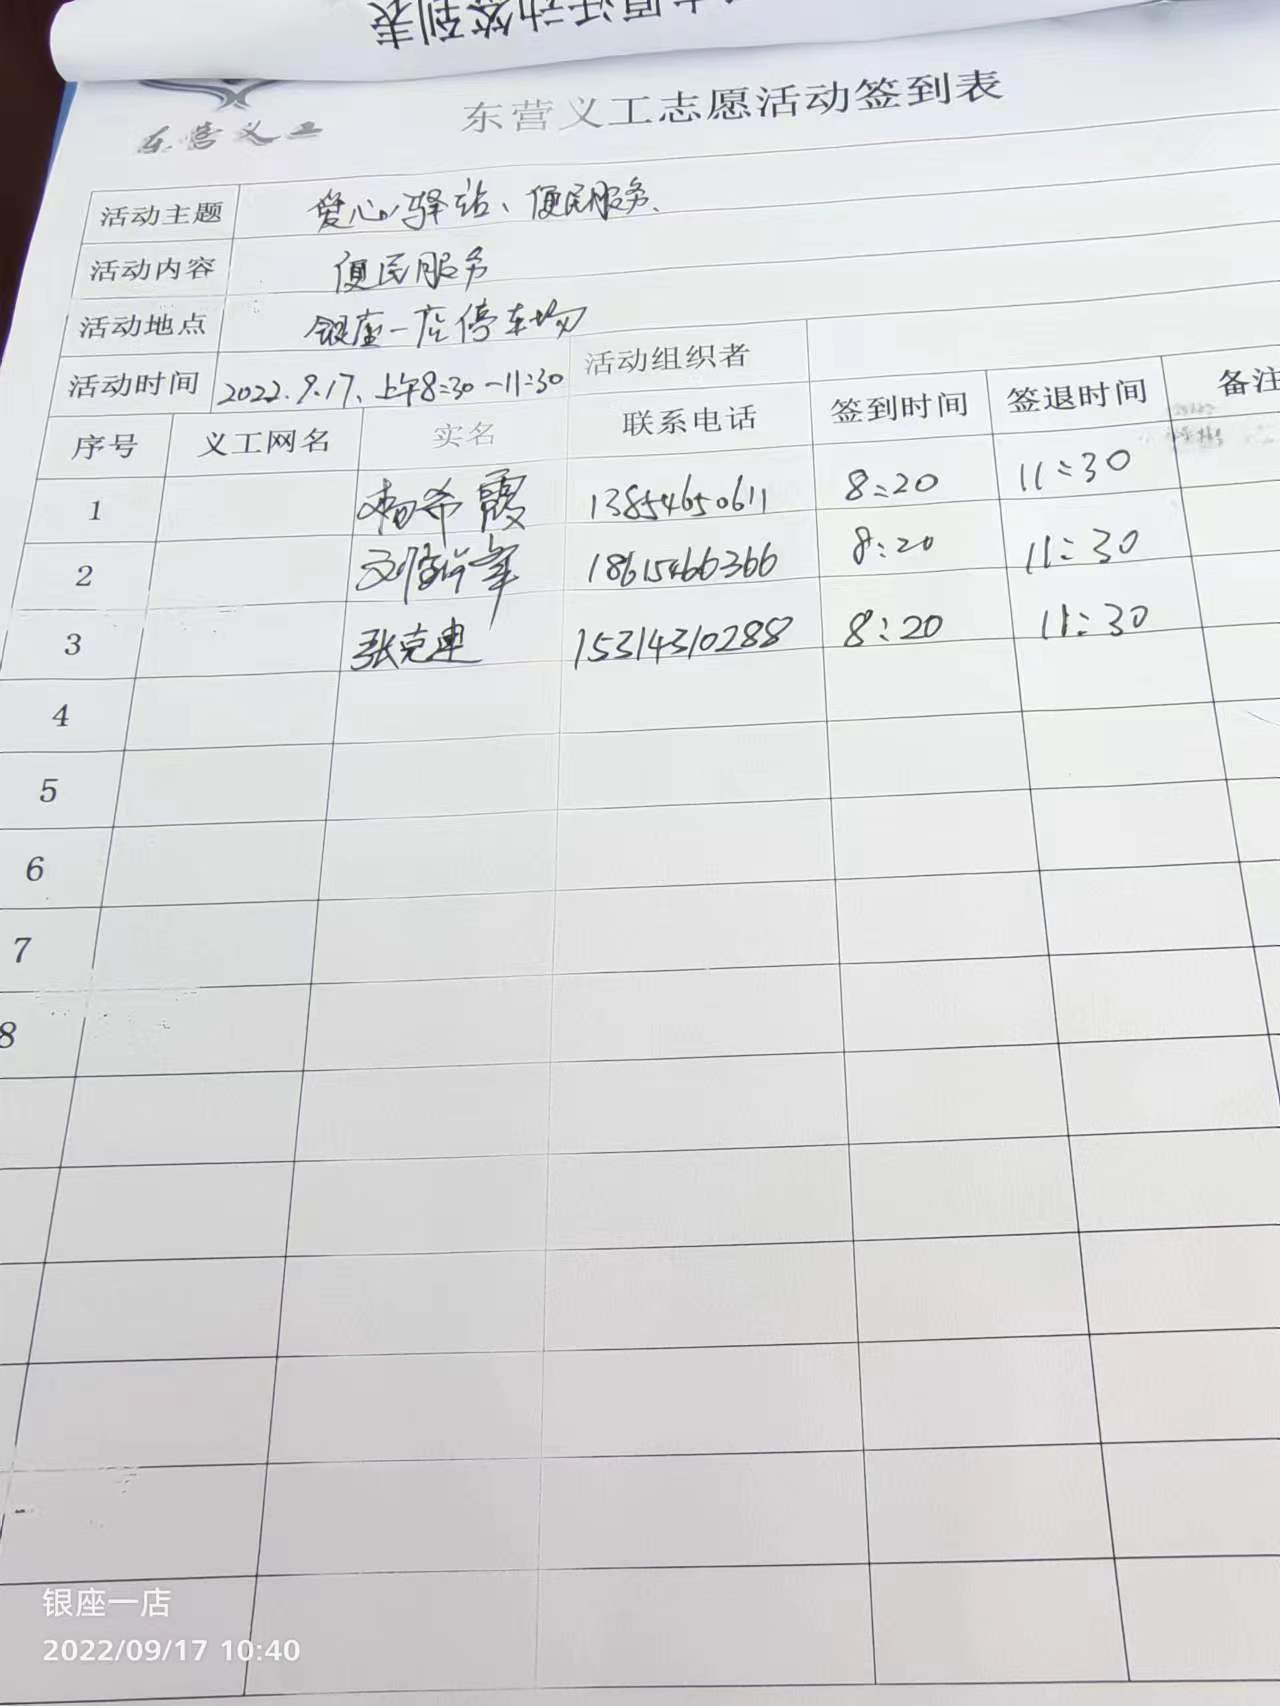 志愿活动签到表
东营义工
东营义工志愿活动签到表
活动主题 爱心驿站、便民服务、
活动内容 便民服务
活动地点 银座一店停车场
活动时间 2022.9.17、上午8:30—11:30 活动组织者
序号 义工网名 实名 联系电话 签到时间 签退时间 备注
1 杨希霞 13854650611 8:20 11:30
2 18615466366 8:20 11:30
3 张克建 15314310288 8:20 11:30
4
5
6
7
8
银座一店
2022/09/17 10:40